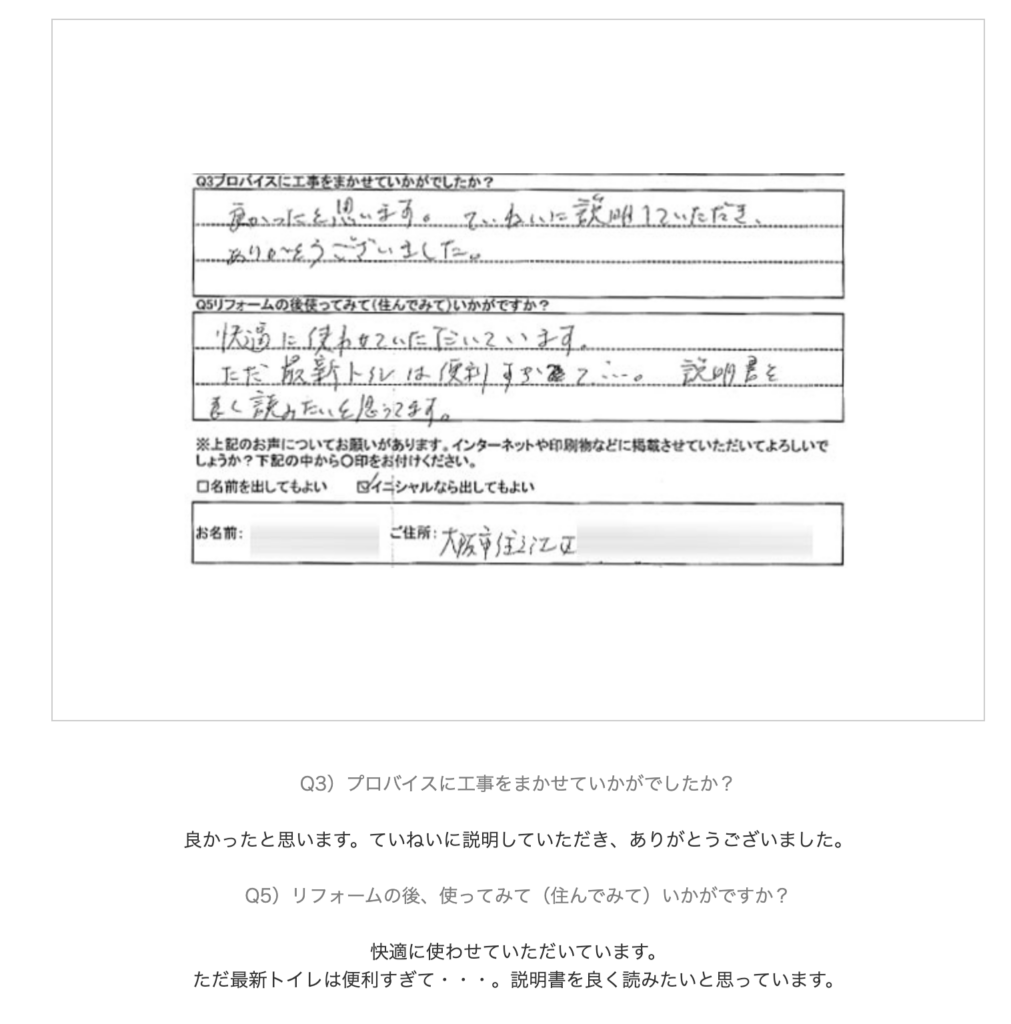 Q3プロバイスに工事をまかせていかがでしたか？
良かったと思います。ていねいに説明していただき、
ありがとうございました。
Q5リフォームの後使ってみて(住んでみて)いかがですか？
快適に使わせていただいています。
ただ最新トイレは便利すぎて…。説明書を
良く読みたいと思ってます。
※上記のお声についてお願いがあります。インターネットや印刷物などに掲載させていただいてよろしいで
しょうか？下記の中から〇印をお付けください。
□名前を出してもよい ☑イニシャルなら出してもよい
お名前: ご住所:大阪市住之江区
Q3）プロバイスに工事をまかせていかがでしたか？
良かったと思います。ていねいに説明していただき、ありがとうございました。
Q5）リフォームの後、使ってみて（住んでみて）いかがですか？
快適に使わせていただいています。
ただ最新トイレは便利すぎて・・・。説明書を良く読みたいと思っています。